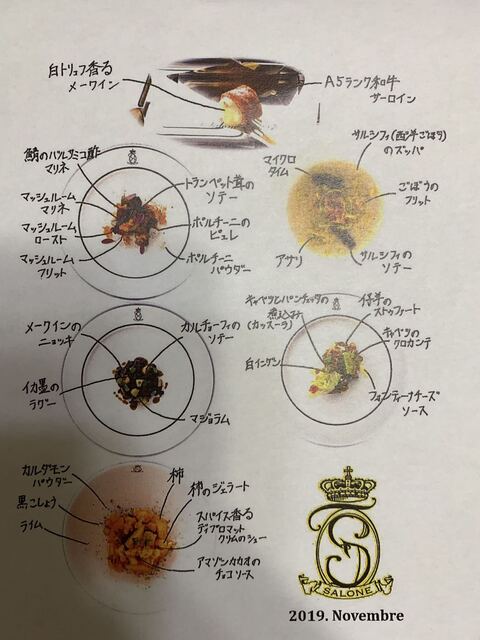 白トリュフ香る
メークイン
A5ランク和牛
サーロイン
鯖のバルサミコ酢
マリネ
マッシュルーム
マリネ
マッシュルーム
ロースト
マッシュルーム
フリット
トランペット茸の
ソテー
ポルチーニの
ピュレ
ポルチーニ
パウダー
サルシフィ(西洋ごぼう)
のズッパ
マイクロ
タイム
ごぼうの
フリット
アサリ
サルシフィの
ソテー
メークインの
ニョッキ
イカ墨の
ラグー
カルチョーフィの
ソテー
マジョラム
キャベツとパンチェッタの
煮込み
(カッスーラ)
白インゲン
仔羊の
ストゥファート
キャベツの
クロカンテ
フォンティーナチーズ
ソース
カルダモン
パウダー
黒こしょう
ライム
柿
柿のジェラート
スパイス香る
ディプロマット
クリームのシュー
アマゾンカカオの
チョコソース
SALONE
2019. Novembre